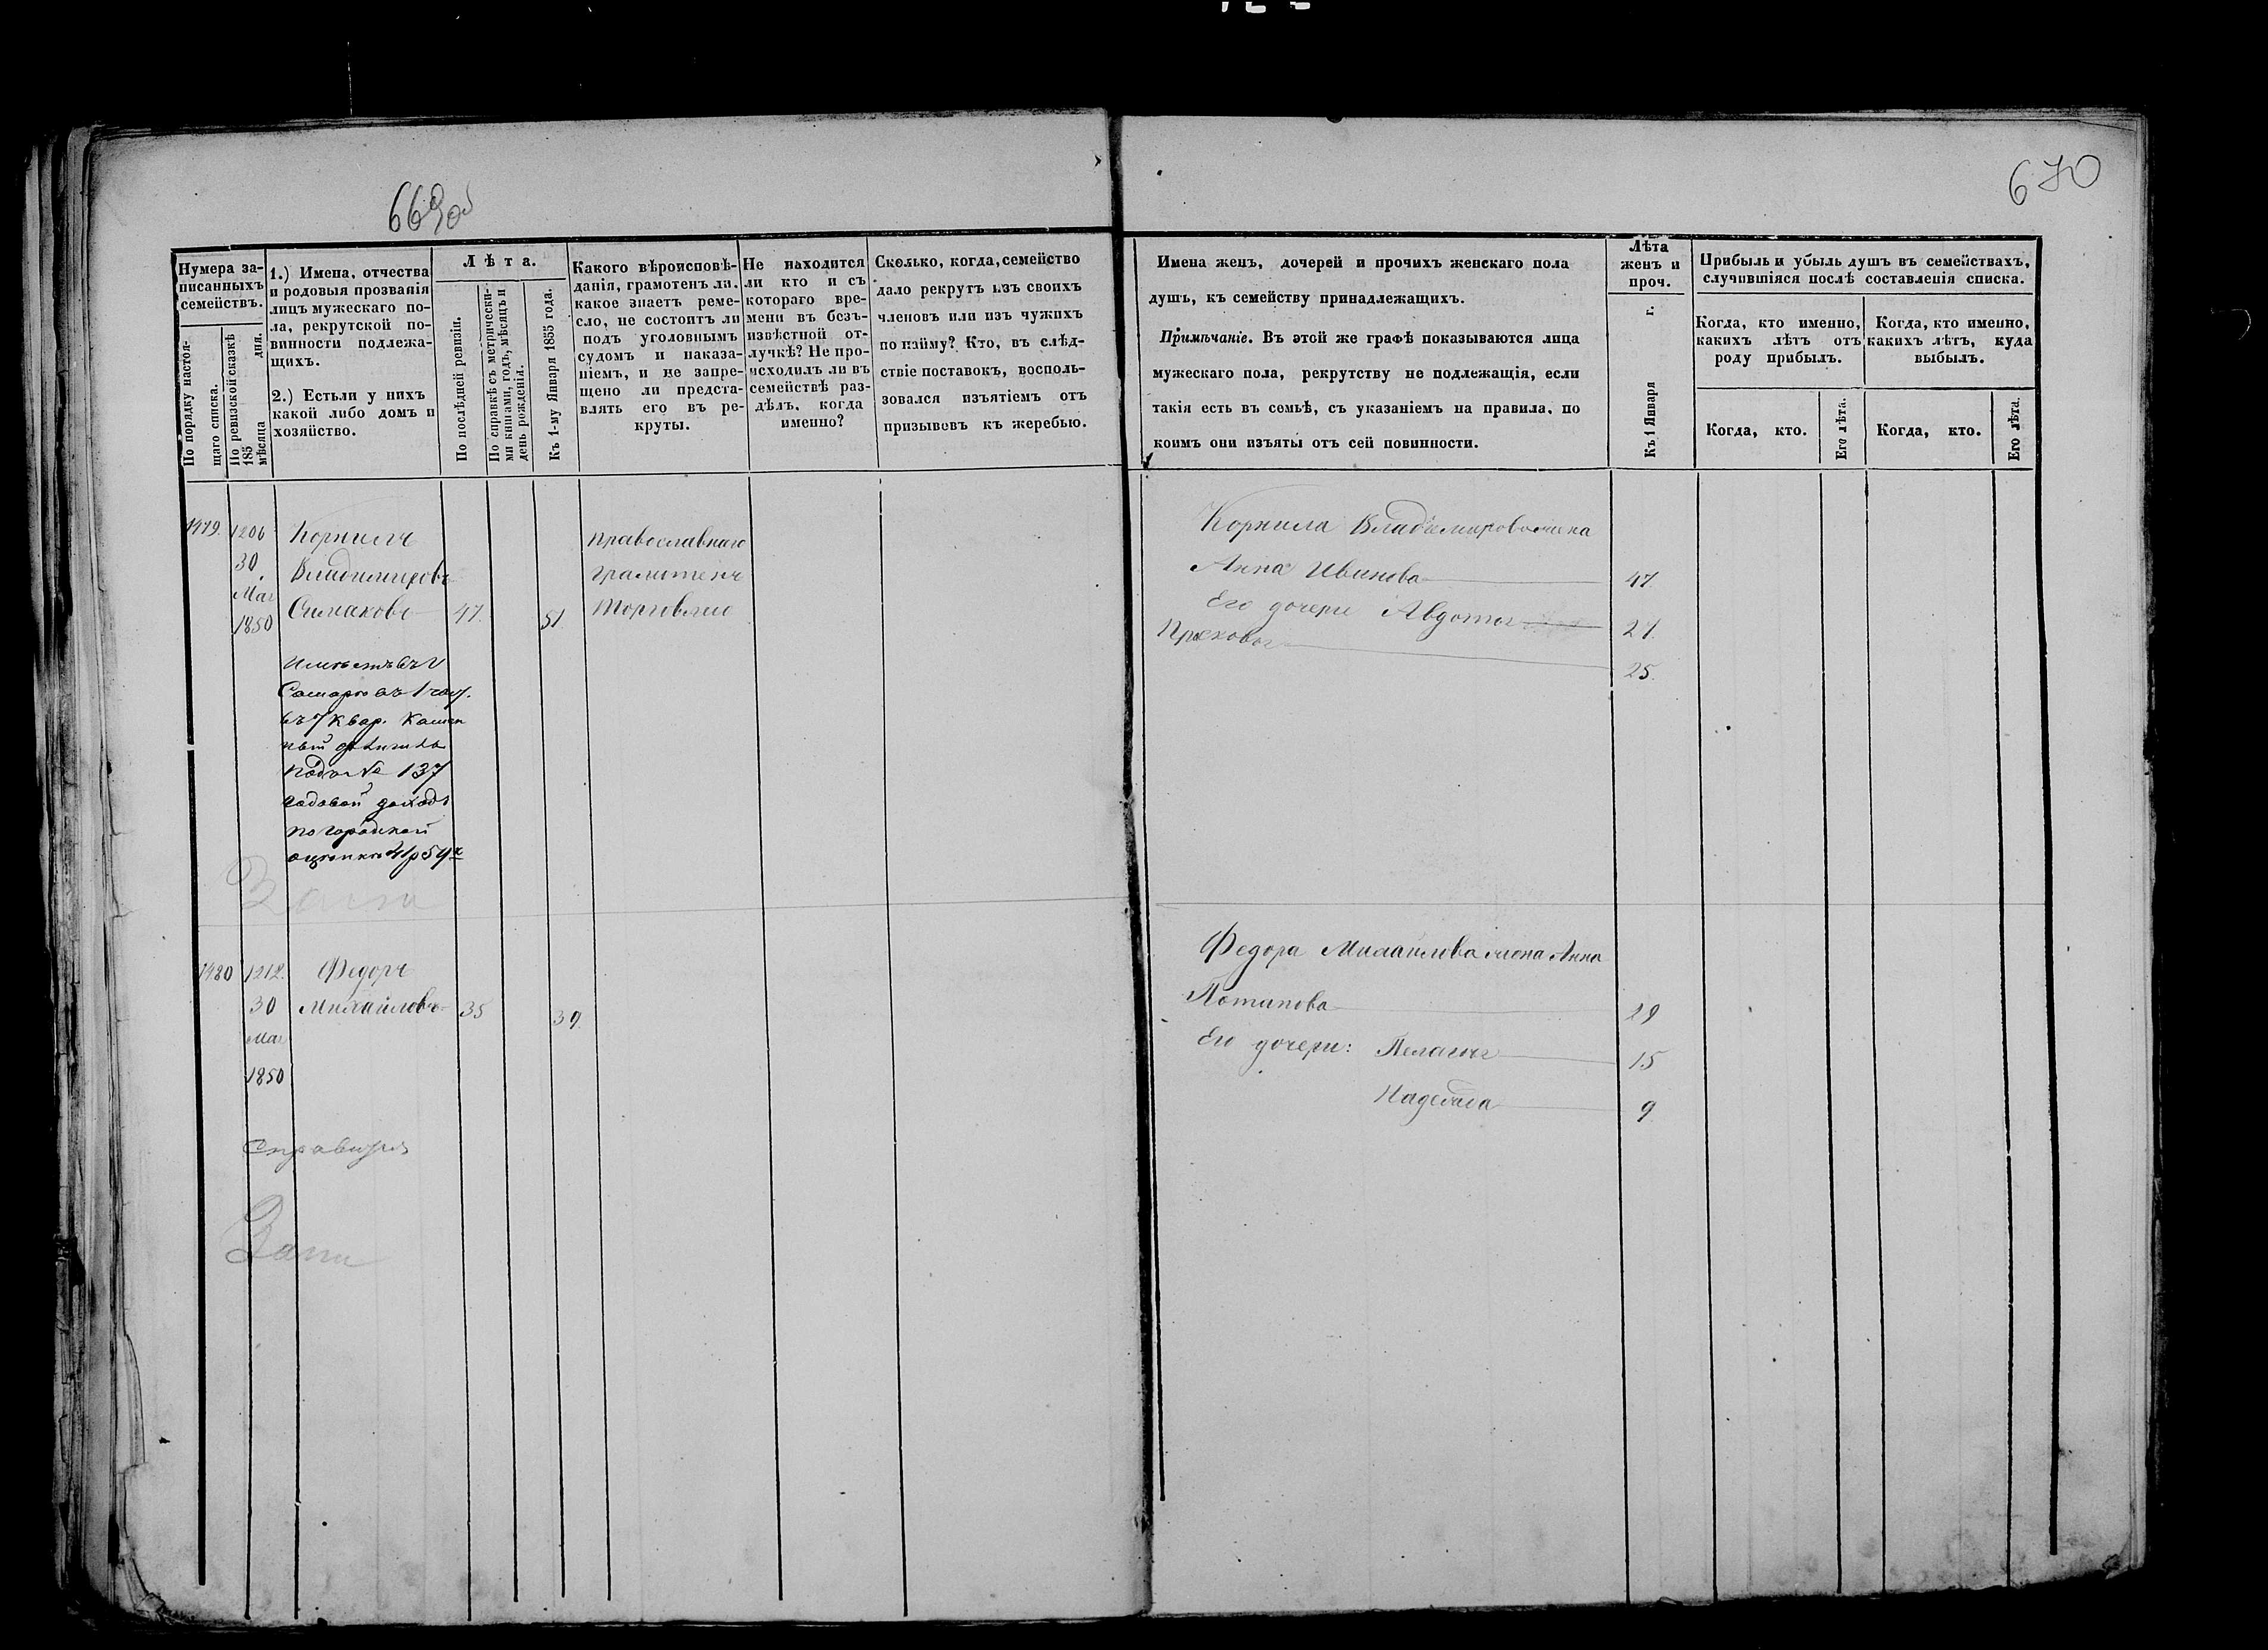 669об
670
Нумера за-
писанныхъ
семействъ.
По порядку настоя-
щаго списка.
По ревизской сказкѣ
185 дня.
мѣсяца
1.) Имена, отчества
и родовыя прозванія
лицъ мужескаго по-
ла, рекрутской по-
винности подлежа-
щихъ.
2.) Естьли у нихъ
какой либо домъ и
хозяйство.
Лѣта.
По послѣдней ревизіи.
По справкѣ съ метрически-
ми книгами, годъ, мѣсяцъ и
день рожденія.
Къ 1-му Января 1855 года.
Какого вѣроисповѣ-
данія, грамотенъ ли.
какое знаетъ реме-
сло, не состоитъ ли
подъ уголовнымъ
судомъ и наказа-
ніемъ, и не запре-
щено ли предста-
влять его въ ре-
круты.
Не находится
ли кто и съ
котораго вре-
мени въ безъ-
извѣстной от-
лучкѣ? Не про-
исходилъ ли въ
семействѣ раз-
дѣлъ, когда
именно?
Сколько, когда, семейство
дало рекрутъ изъ своихъ
членовъ или изъ чужихъ
по найму? Кто, въ слѣд-
ствіе поставокъ, восполь-
зовался изъятіемъ отъ
призывовъ къ жеребью.
Имена женъ, дочерей и прочихъ женскаго пола
душъ, къ семейству принадлежащихъ.
Примѣчаніе. Въ этой же графѣ показываются лица
мужескаго пола, рекрутству не подлежащія, если
такія есть въ семьѣ, съ указаніемъ на правила, по
коимъ они изъяты отъ сей повинности.
Лѣта
женъ и
проч.
Къ 1 Января г.
Прибыль и убыль душъ въ семействахъ,
случившіяся послѣ составленія списка.
Когда, кто именно,
какихъ лѣтъ отъ
роду прибылъ.
Когда, кто именно,
какихъ лѣтъ, куда
выбылъ.
Когда, кто.
Его лѣта.
Когда, кто.
Его лѣта.
1479. 1206 Корнилъ православнаго
30 Владимировъ грамотенъ
Мая Симаковъ 47. 51 Торговлею
1850
Имѣетъ въ г
Самарѣ въ 1 част.
въ 7 квар. камен
ный
подъ № 137
годовой доходъ
по городской
оцѣнкѣ 41р 54к
Корнила Владимирова жена
Анна Иванова 47
Его дочери Авдотья 27.
Прасковья 25.
1480 1212. Федоръ
30 Михайловъ 35 39.
Мая
1850
Федора Михайлова жена Анна
Потапова 29
Его дочери: Пелагья 15
Надежда 9